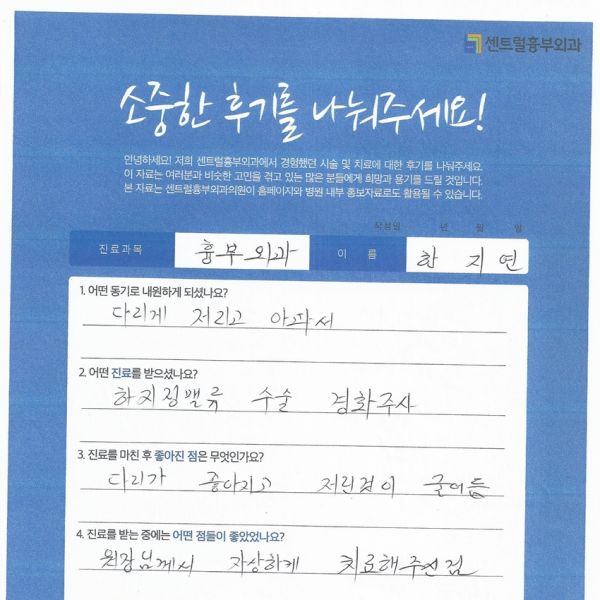 센트럴흉부외과
소중한 후기를 나눠주세요!
안녕하세요! 저희 센트럴흉부외과에서 경험했던 시술 및 치료에 대한 후기를 나눠주세요.
이 자료는 여러분과 비슷한 고민을 겪고 있는 많은 분들에게 희망과 용기를 드릴 것입니다.
본 자료는 센트럴흉부외과의원이 홈페이지와 병원 내부 홍보자료로도 활용될 수 있습니다.
작성일 년 월 일
진료과목 흉부외과 이 름 한 지 연
1. 어떤 동기로 내원하게 되셨나요?
다리게 저리고 아파서
2. 어떤 진료를 받으셨나요?
하지정맥류 수술 경화주사
3. 진료를 마친 후 좋아진 점은 무엇인가요?
다리가 좋아지고 저린검이 줄어듬
4. 진료를 받는 중에는 어떤 점들이 좋았었나요?
원장님께서 자상하게 치료해주신점